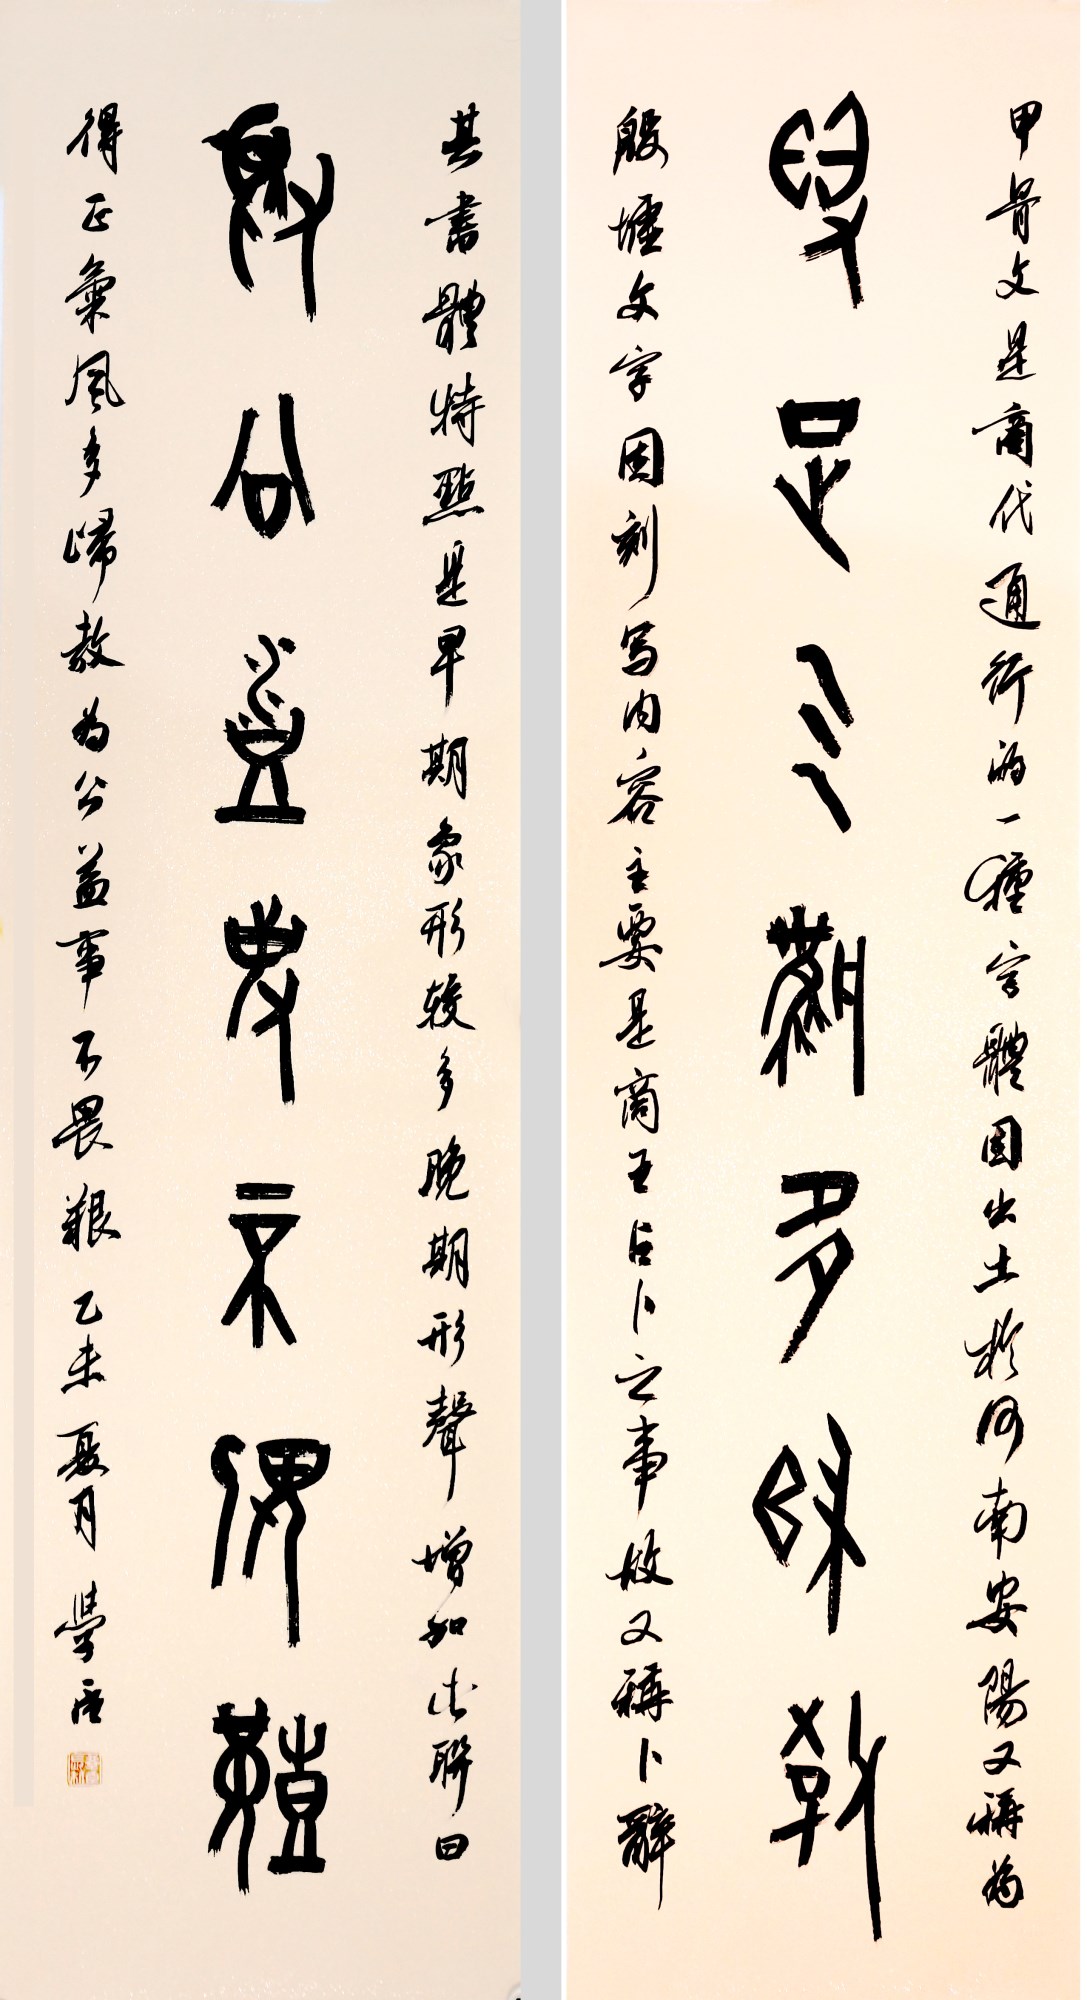 甲骨文是商代通行的一種字體因出土於河南安陽又稱為
得正氣風多歸教
殷墟文字因刻写内容主要是商王占卜之事故又稱卜辭
其書體特點是早期象形较多晚期形聲增加此聯曰
為公益事不畏艱
得正氣風多歸教為公益事不畏艱 乙未夏月 學